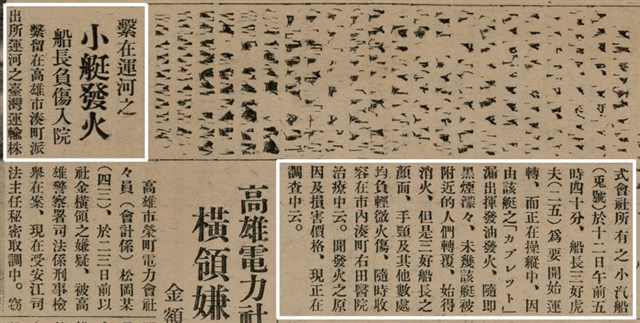 繫在運河之
小艇發火
船長負傷入院
繫留在高雄市湊町派
出所運河之臺灣運輸株
式會社所有之小汽船
(兎號)於十二日午前五
時四十分、船長三好虎
夫(二五)爲要開始運
轉、而正在操縱中、因
由該艇之「カブレツト」
漏出揮發油發火、隨即
黑煙濛々、未幾該艇被
附近的人們轉覆、始得
消火、但是三好船長之
顏面、手頸及其他數處
均負輕微火傷、隨時收
容在市內湊町右田醫院
治療中云。聞發火之原
因及損害價格、現正在
調查中云。
高雄電力社
橫領嫌
金額
高雄市榮町電力會社
々員(會計係)松岡某
(四三)、於二三日前以
社金橫領之嫌疑、被高
雄警察署司法係刑事檢
擧在案、現在受安江司
法主任秘密取調中。窃